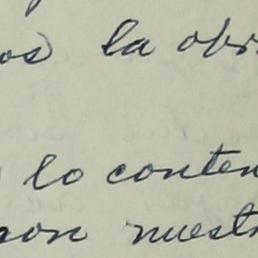 os la obr
lo conten
son nuestr